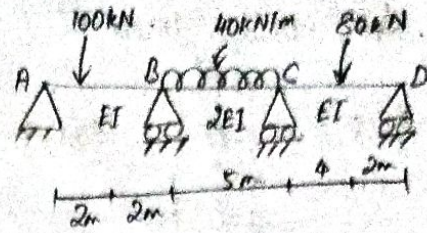 100kN 40kN/m 80kN
A B C D
EI 2EI EI
2m 2m 5m 4 2m